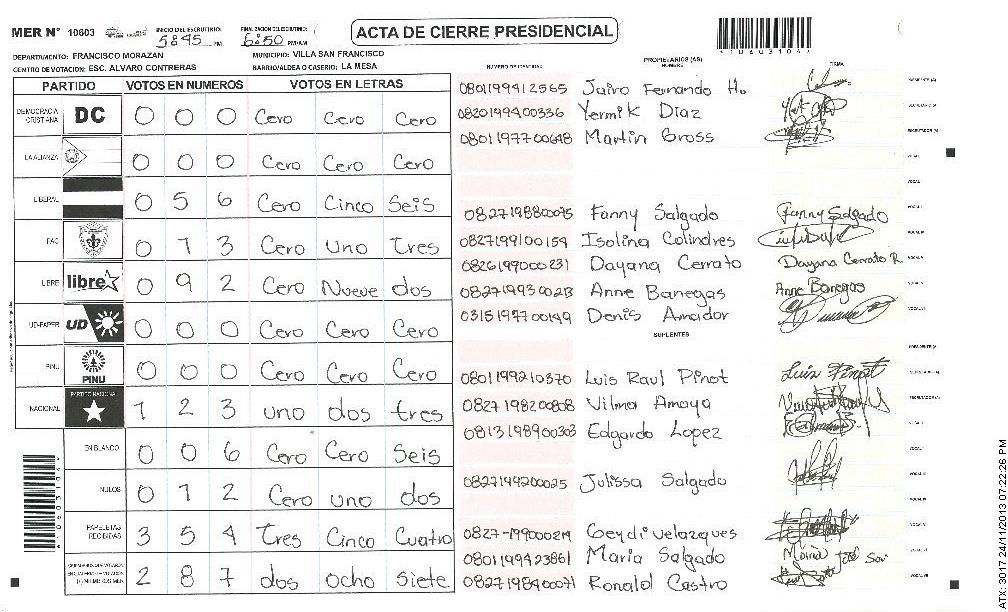 MER N° 10603 INICIO DEL ESCRUTINIO: 5:45 PM FINALIZACION DEL ESCRUTINIO: 6:50 PM/AM
ACTA DE CIERRE PRESIDENCIAL
DEPARTAMENTO: FRANCISCO MORAZAN MUNICIPIO: VILLA SAN FRANCISCO
CENTRO DE VOTACION: ESC. ALVARO CONTRERAS BARRIO/ALDEA O CASERIO: LA MESA
PARTIDO VOTOS EN NUMEROS VOTOS EN LETRAS
DEMOCRACIA CRISTIANA DC 0 0 0 Cero Cero Cero
LA ALIANZA 0 0 0 Cero Cero Cero
LIBERAL 0 5 6 Cero Cinco Seis
PAC 0 1 3 Cero uno tres
LIBRE libre 0 9 2 Cero Nueve dos
UD-FAPER UD 0 0 0 Cero Cero Cero
PINU PINU 0 0 0 Cero Cero Cero
NACIONAL PARTIDO NACIONAL 1 2 3 uno dos tres
EN BLANCO 0 0 6 Cero Cero Seis
NULOS 0 1 2 Cero uno dos
PAPELETAS RECIBIDAS 3 5 4 Tres Cinco Cuatro
2 8 7 dos ocho siete
NUMERO DE IDENTIDAD PROPIETARIOS (AS) NOMBRE FIRMA
0801199412565 Jairo Fernando H. PRESIDENTE (A)
0820199400336 Yermik Diaz SECRETARIO (A)
0801197700648 Martin Gross ESCRUTADOR (A)
VOCAL I
0827198800075 Fanny Salgado Fanny Salgado
0827199100159 Isolina Colindres
0826199000231 Dayana Cerrato Dayana Cerrato R
0827199300213 Anne Banegas Anne Banegas
0315197700149 Denis Amador
SUPLENTES
PRESIDENTE (A)
0801199210370 Luis Raul Pinot Luis Pinot
0827198200808 Vilma Amaya
0813198900303 Edgardo Lopez
0827199200025 Julissa Salgado
0827-199000214 Geydi Velazques
0801199423861 Maria Salgado
0827198400071 Ronald Castro
10603104
ATX: 3017 24/11/2013 07:22:26 PM